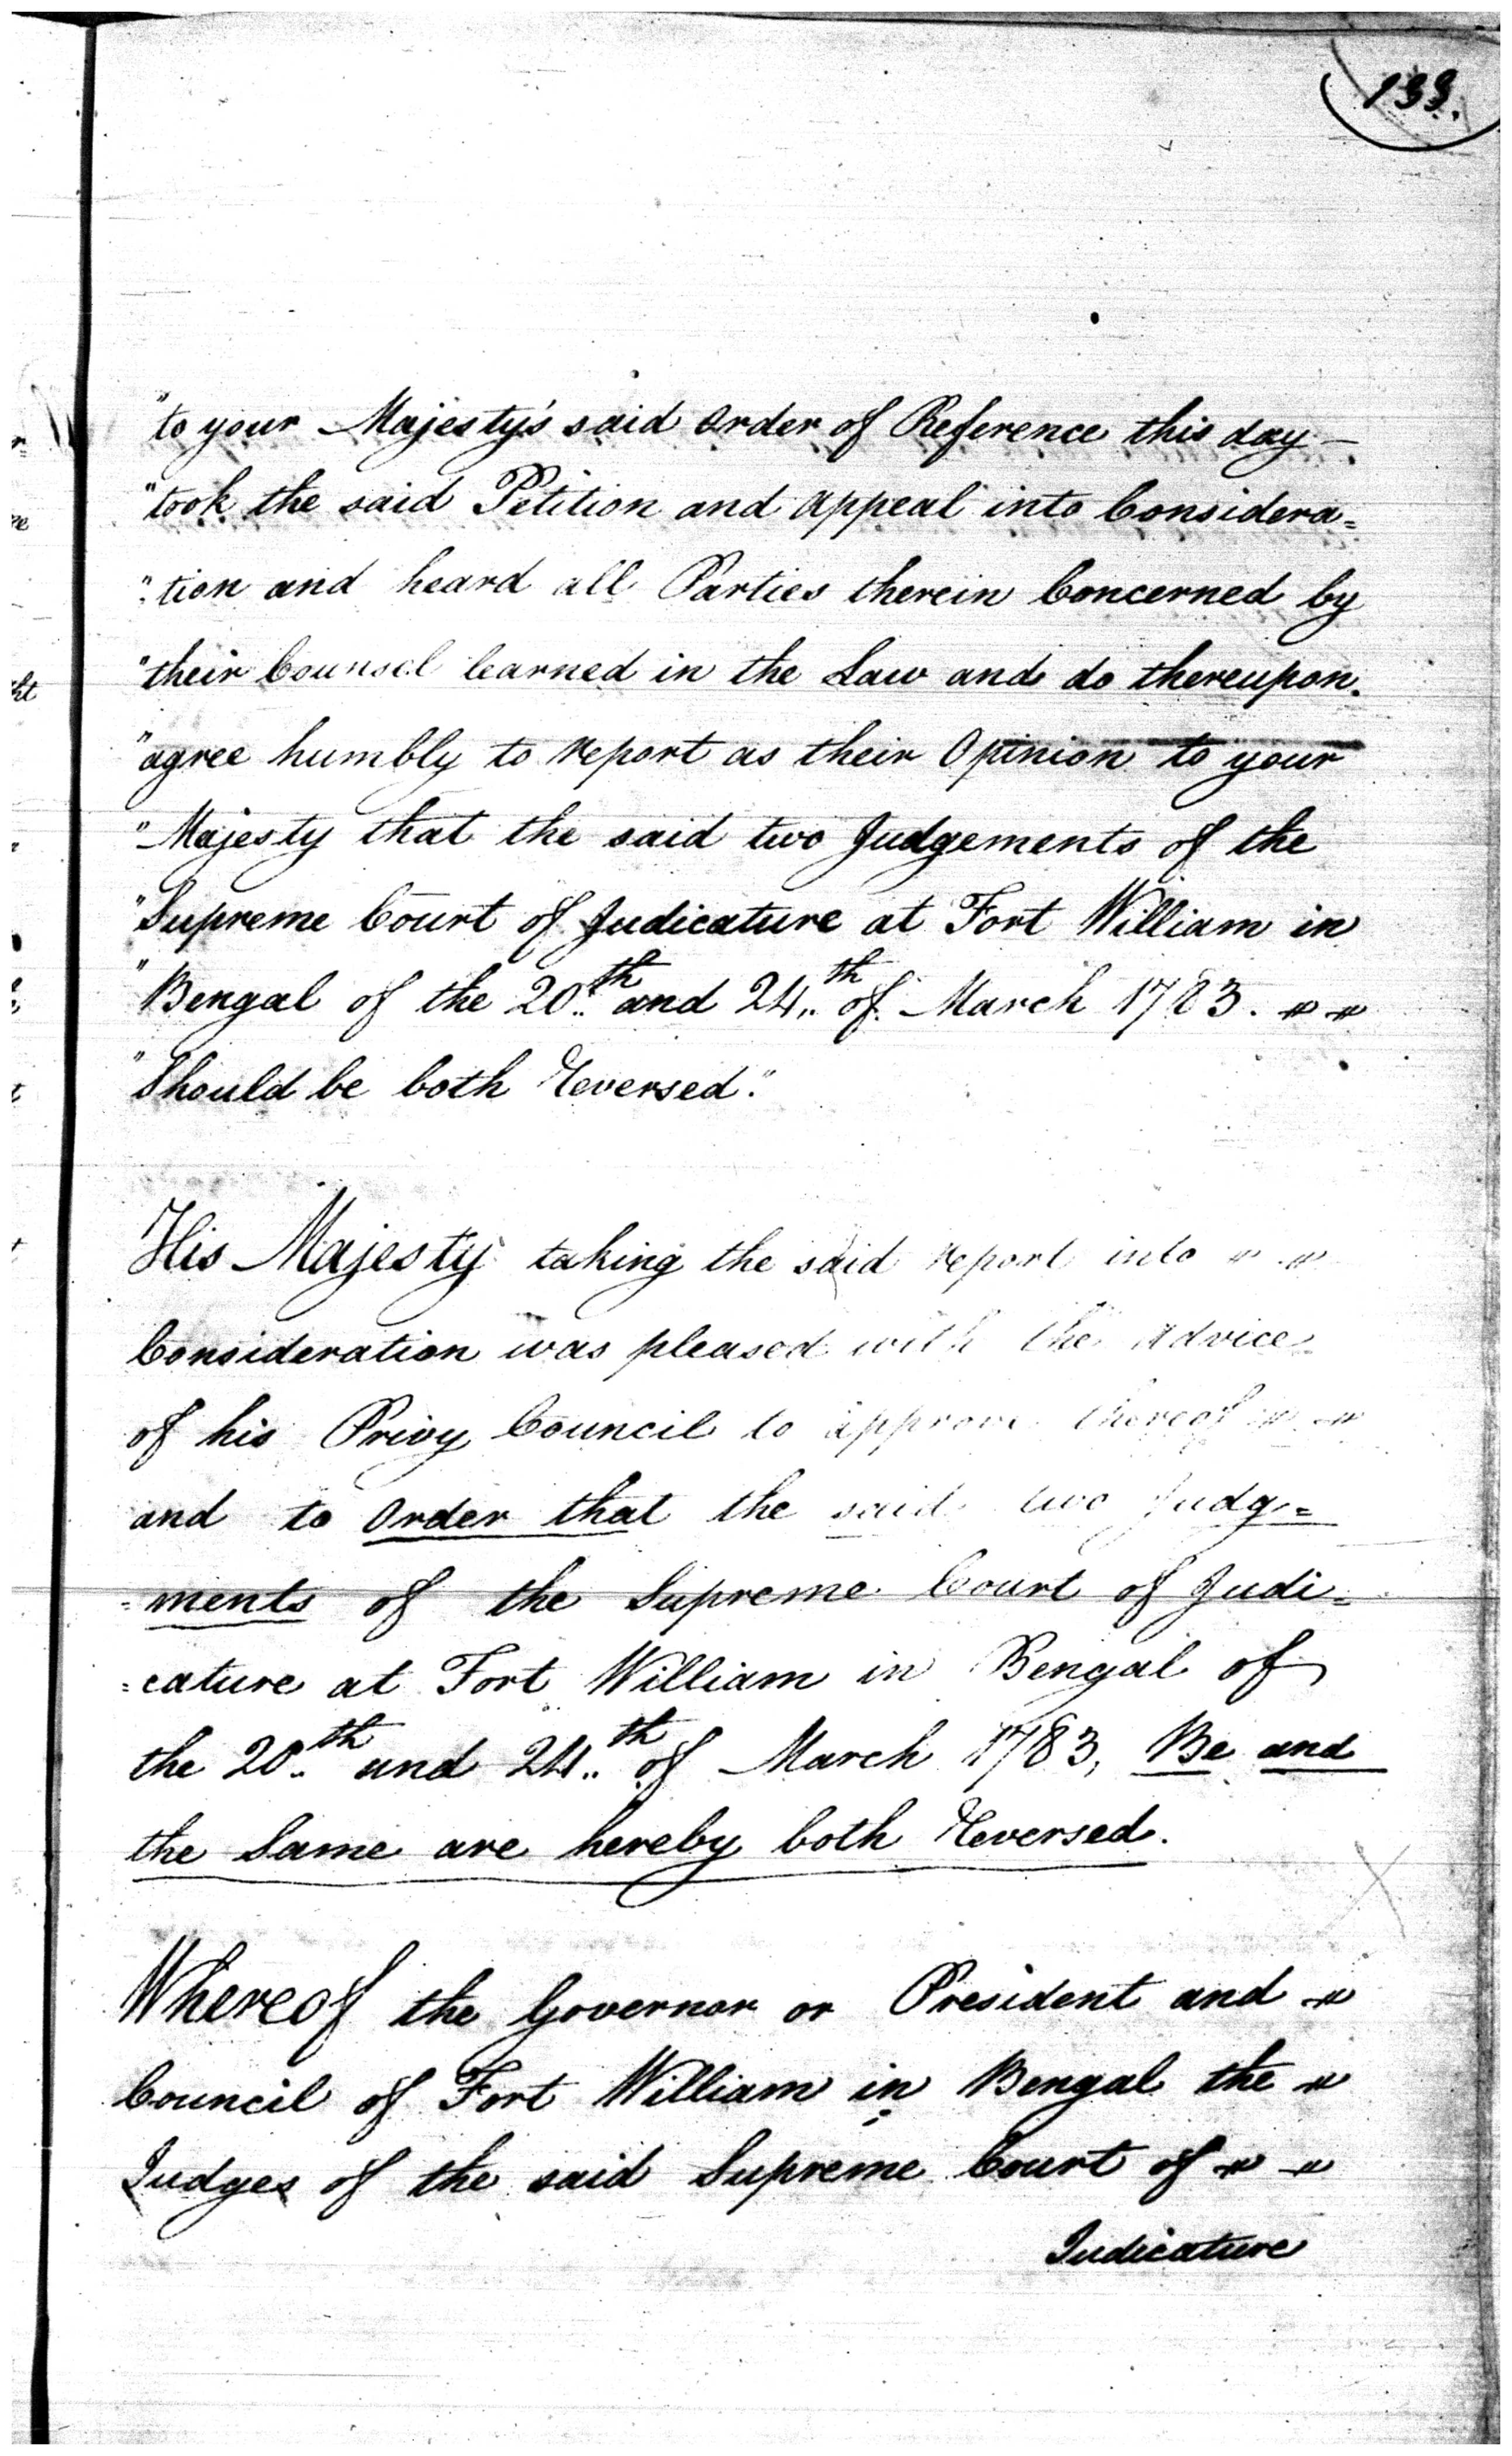 133.
"to your Majesty's said Order of Reference this day —
"took the said Petition and Appeal into Considera=
"tion and heard all Parties therein Concerned by
"their Counsel learned in the Law and do thereupon
"agree humbly to report as their Opinion to your
"Majesty that the said two Judgements of the
"Supreme Court of Judicature at Fort William in
"Bengal of the 20th and 24th of March 1783.
"Should be both Reversed."
His Majesty taking the said report into
Consideration was pleased with the Advice
of his Privy Council to approve thereof
and to Order that the said two Judg=
=ments of the Supreme Court of Judi=
=cature at Fort William in Bengal of
the 20th and 24th of March 1783, Be and
the Same are hereby both Reversed.
Whereof the Governor or President and
Council of Fort William in Bengal the
Judges of the said Supreme Court of
Judicature